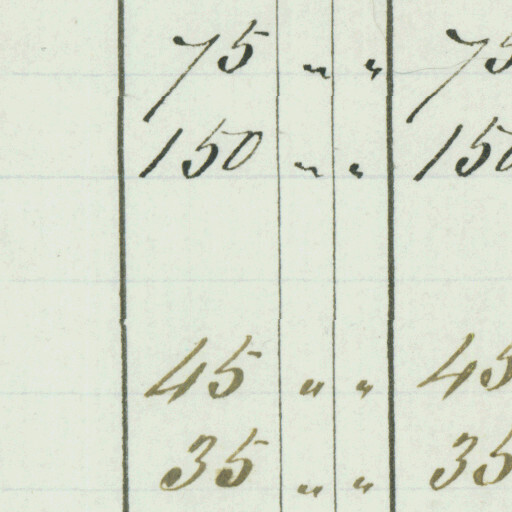 75 " " 75
150 " " 150
45 " " 45
35 " " 35